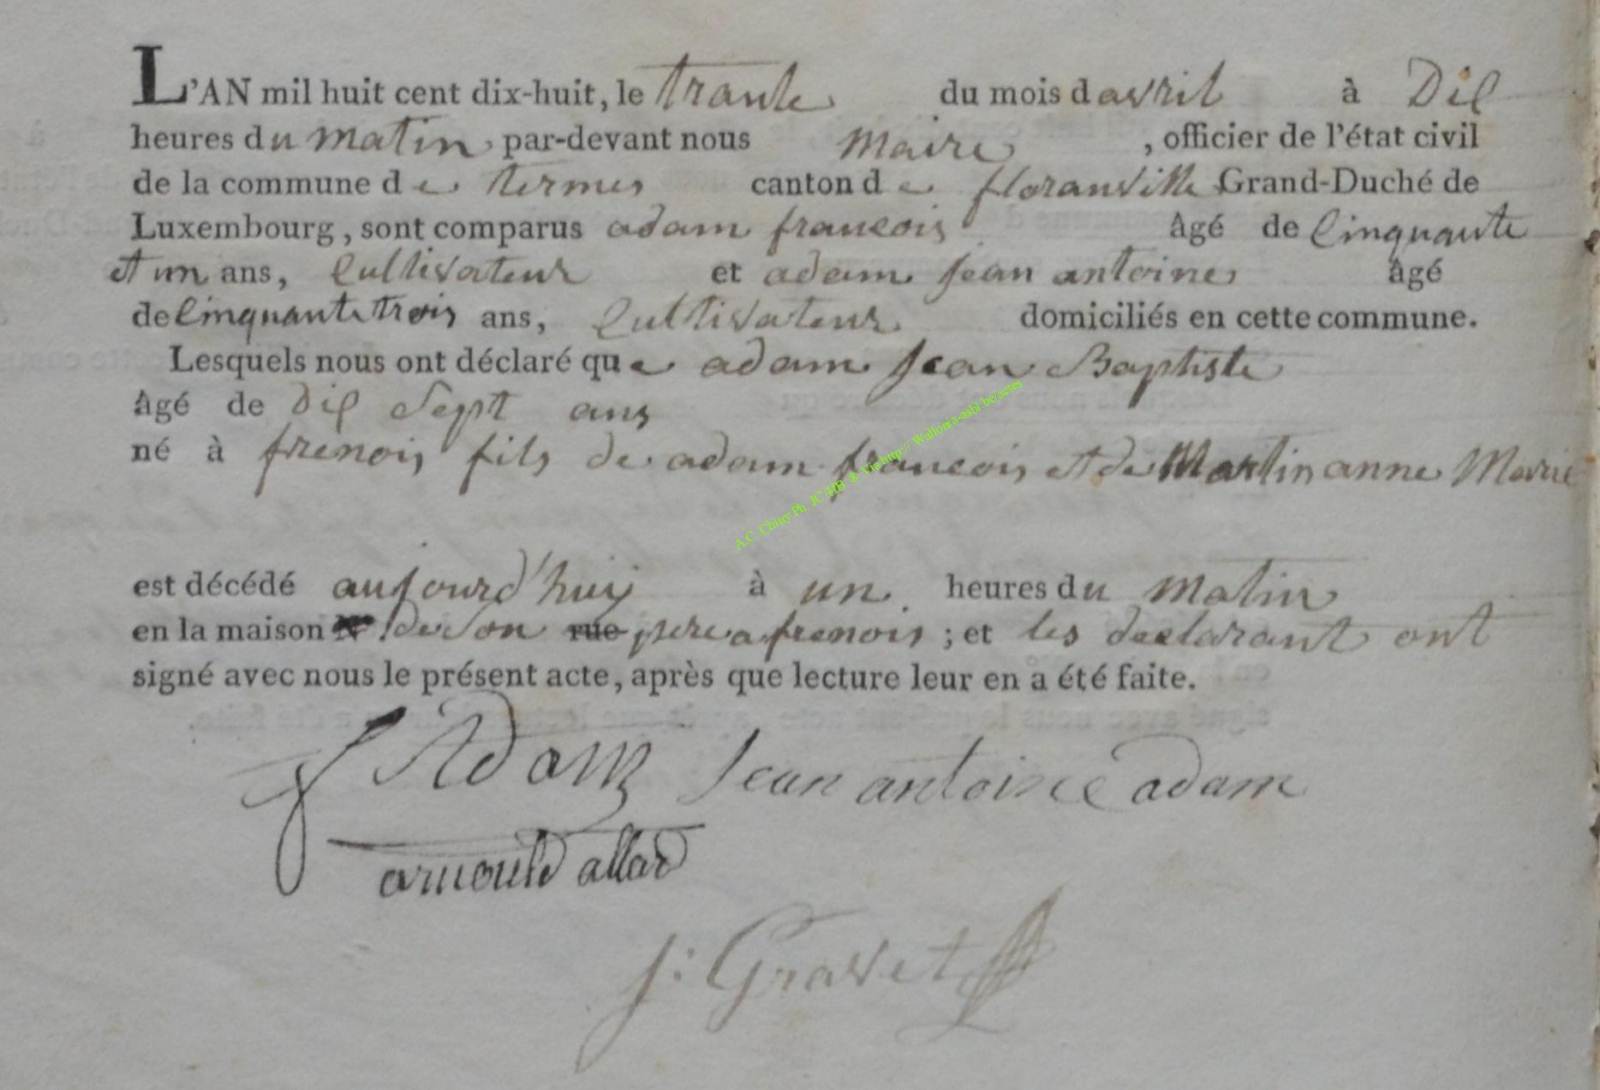 L'AN mil huit cent dix-huit, le trante du mois d avril à Dil
heures du matin par-devant nous Maire , officier de l'état civil
de la commune d e termes canton d e floranville Grand-Duché de
Luxembourg, sont comparus adam francois âgé de Cinquante
et un ans, Cultivateur et adam jean antoine âgé
de Cinquante trois ans, Cultivateur domiciliés en cette commune.
Lesquels nous ont déclaré que adam jean Baptiste
âgé de Dil Sept ans
né à frenois fils de adam francois et de Martin anne Marie
est décédé aujourd'huij à un heures du Matin
en la maison de Son rue pere a frenois ; et les declarant ont
signé avec nous le présent acte, après que lecture leur en a été faite.
f Adam Jean antoine adam
arnould allard
J: Gravet